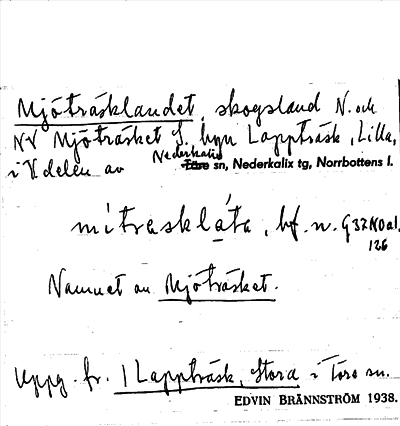 Mjöträsklandet, skogsland N. och
NV Mjöträsket S. byn Lappträsk, Lilla,
i V delen av Nederkalix Töre sn, Nederkalix tg, Norrbottens l.
mi´traskla´ta, bf. n. G37N0a1,
126
Namnet av Mjöträsket.
Uppg. fr. 1 Lappträsk, Stora i Töre sn.
EDVIN BRÄNNSTRÖM 1938.